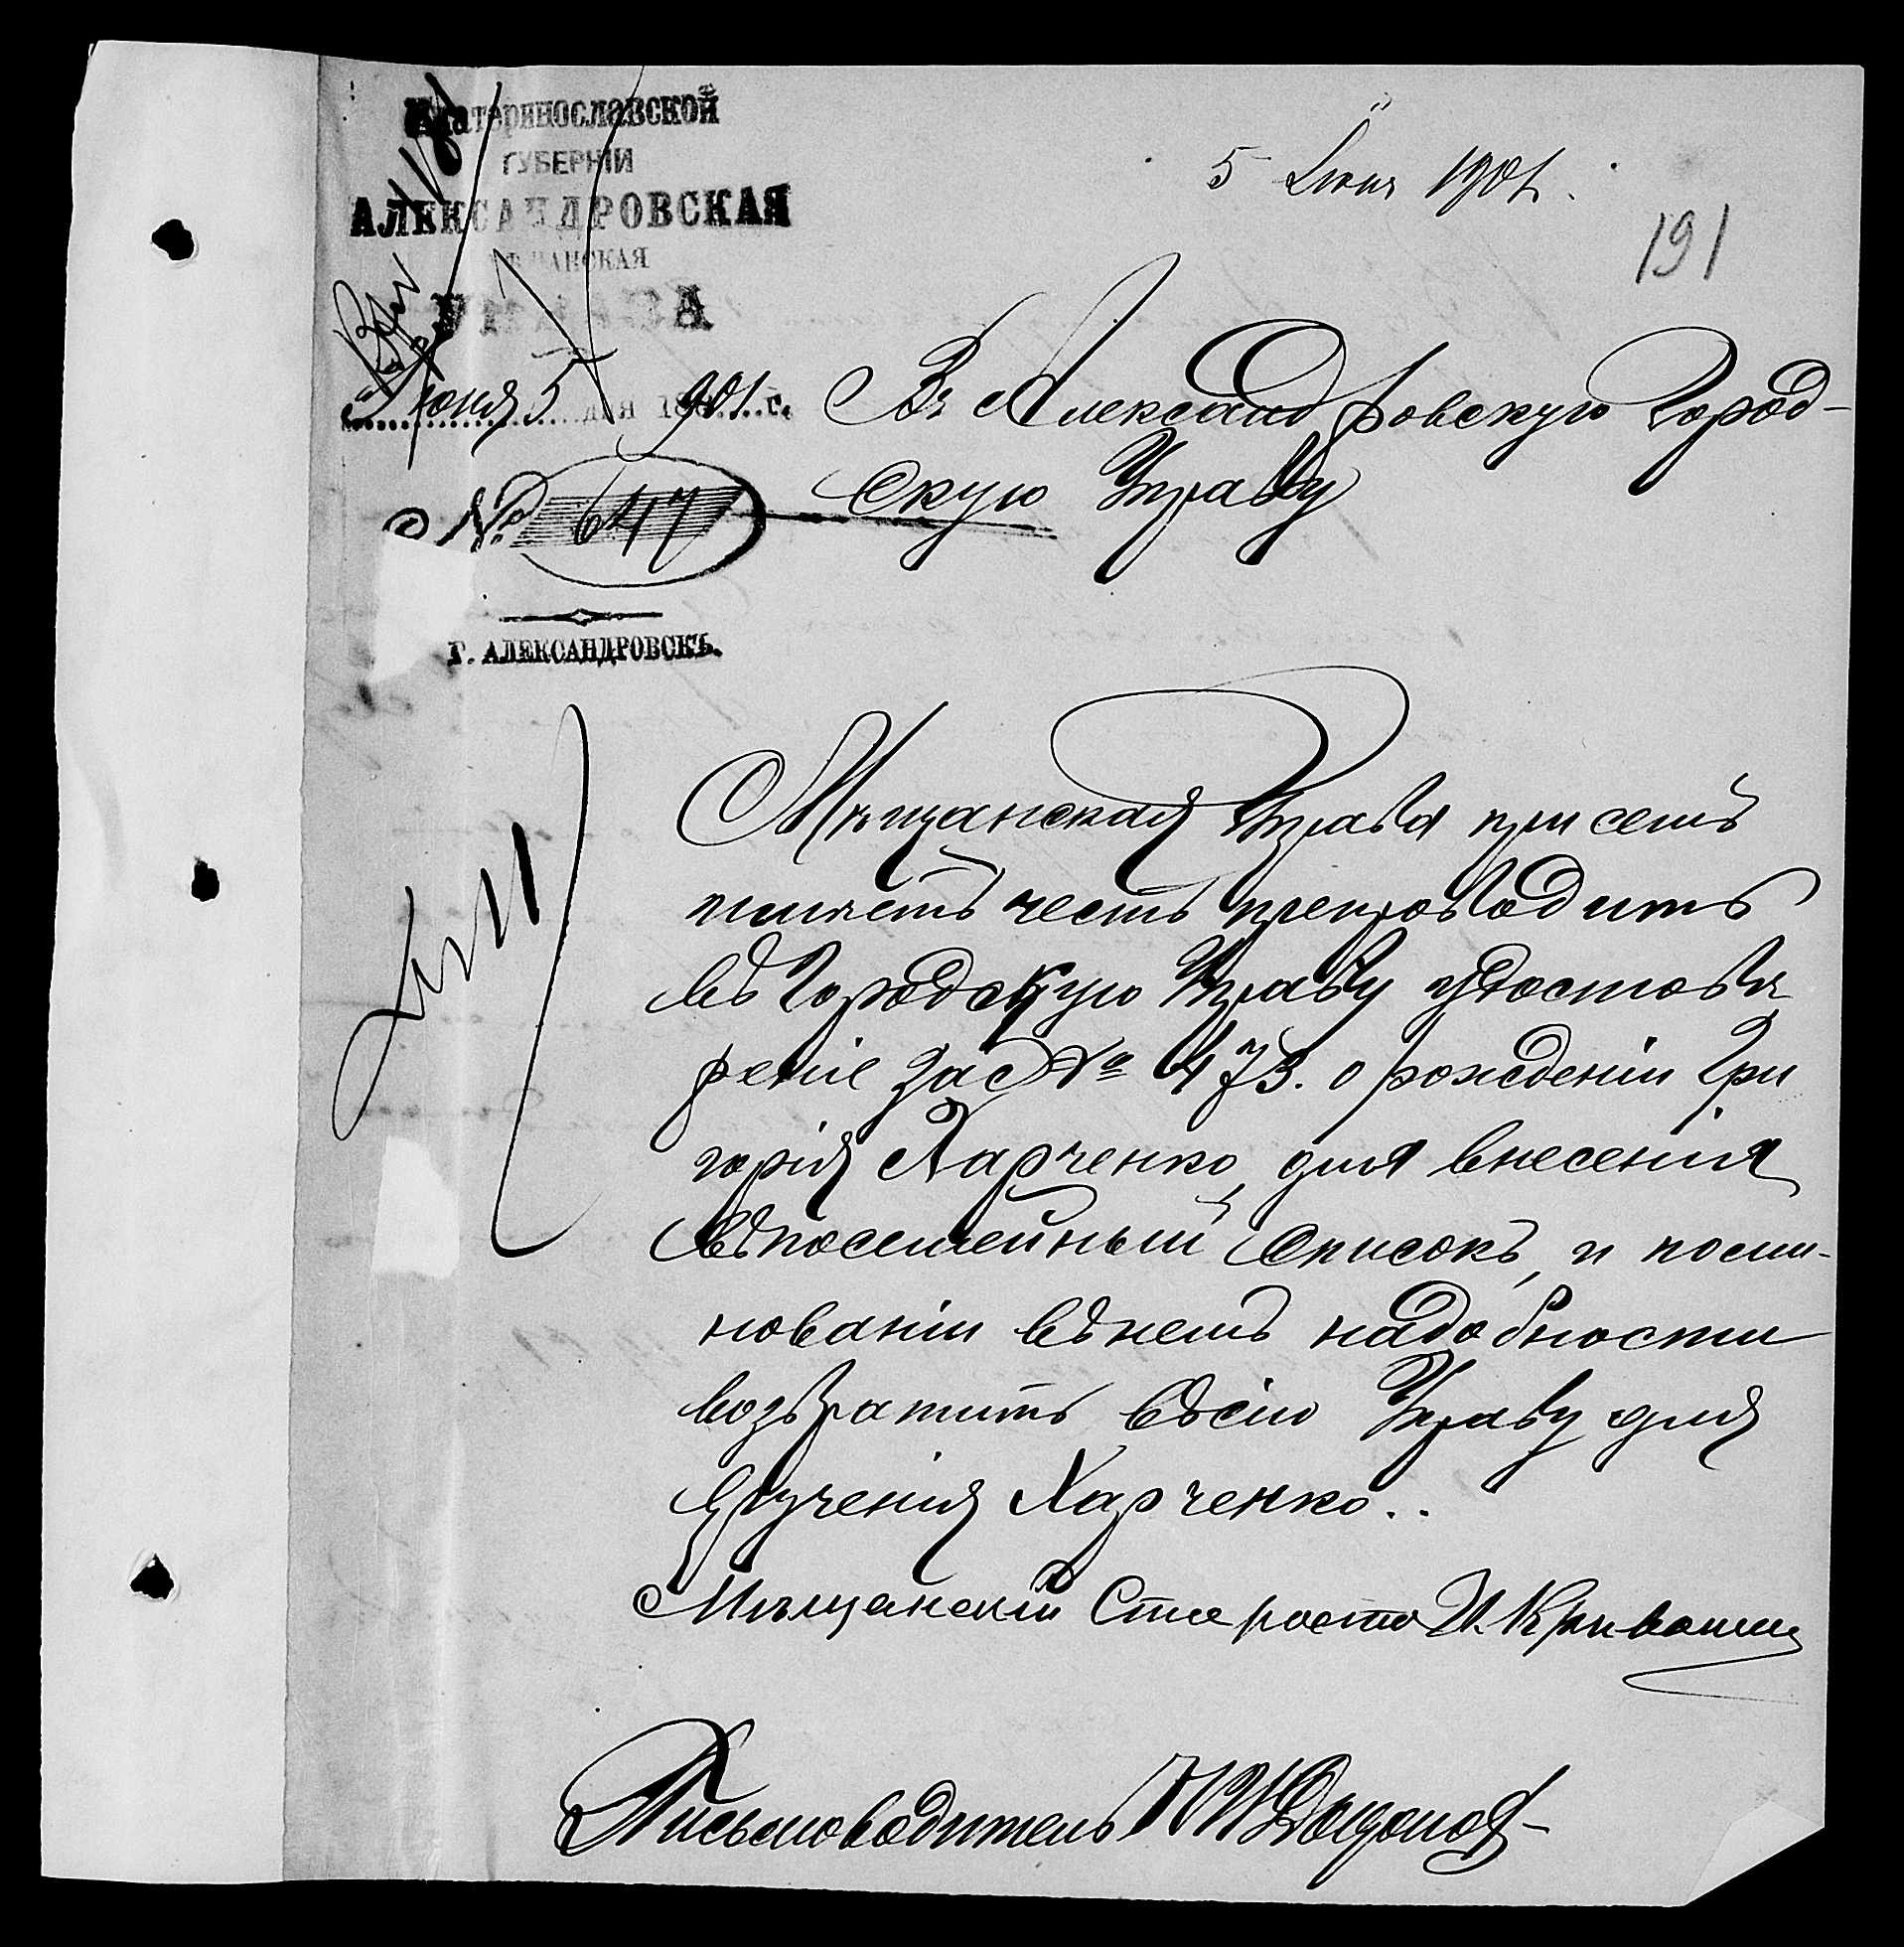 Екатеринославской
ГУБЕРНІИ
АЛЕКСАНДРОВСКАЯ
МѢЩАНСКАЯ
УПРАВА
Іюня 5 дня 1901 г.
№ 647
Г. АЛЕКСАНДРОВСКЪ.
5 Іюня 1901 г.
191
Въ Александровскую Город-
скую Управу
Мѣщанская Управа при семъ
имѣетъ честь препроводить
въ Городскую Управу удостовѣ
реніе за № 473. о рожденіи Гри
горія Харченко, для внесенія
въ посемейный списокъ, и по ми-
нованіи въ немъ надобности
возвратить въ сію Управу для
врученія Харченко..
Мѣщанскій Староста И. Кривошия
Письмоводитель